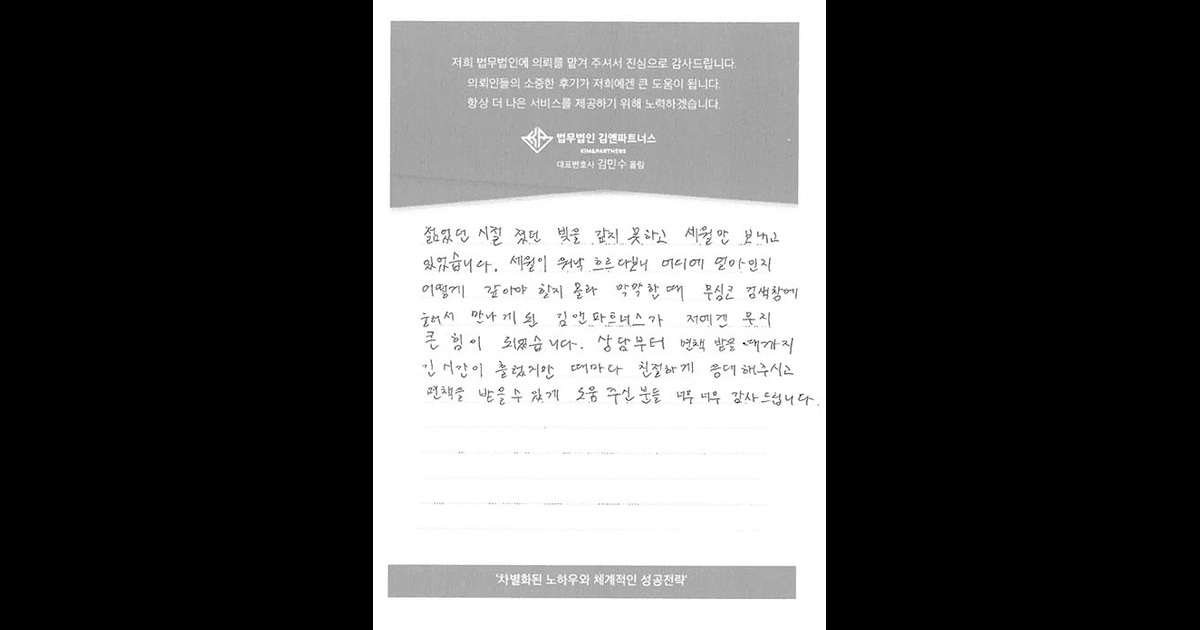 저희 법무법인에 의뢰를 맡겨 주셔서 진심으로 감사드립니다.
의뢰인들의 소중한 후기가 저희에겐 큰 도움이 됩니다.
항상 더 나은 서비스를 제공하기 위해 노력하겠습니다.
법무법인 김앤파트너스
KIM&PARTNERS
대표변호사 김민수 올림
젊었던 시절 졌던 빚을 갚지 못하고 세월만 보내고
있었습니다. 세월이 워낙 흐르다보니 어디에 얼마인지
어떻게 갚아야 할지 몰라 막막할 때 무심코 검색창에
눌러서 만나게 된 김앤파트너스가 저에겐 뭔지
큰 힘이 되었습니다. 상담부터 면책 받을 때까지
긴 시간이 흘렀지만 때마다 친절하게 응대해주시고
면책을 받을 수 있게 도움 주신 분들 너무 너무 감사드립니다.
'차별화된 노하우와 체계적인 성공전략'